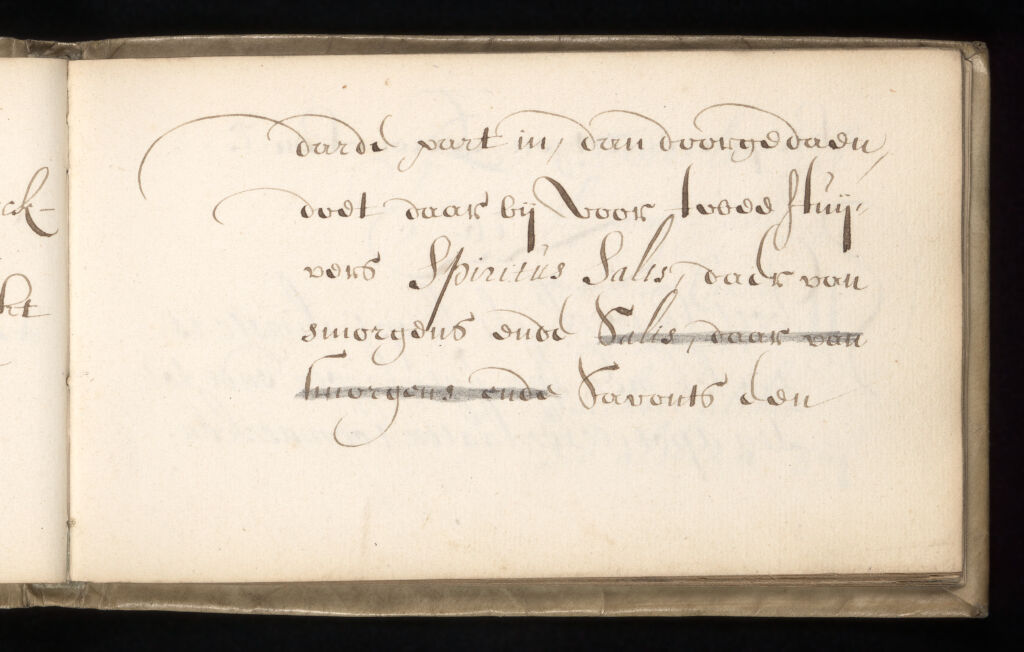 ck-
kt
darde part in, dan doorgedaen,
doet daar bij voor twee stuij-
vers Spiritus Salis, daer van
smorgens ende Salis, daar van
smorgens ende Savonts een